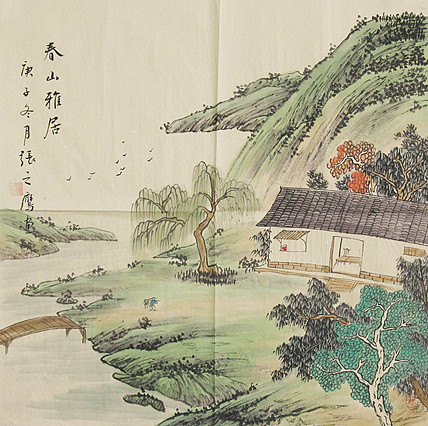 春山雅居
庚子冬月張之鷹畫